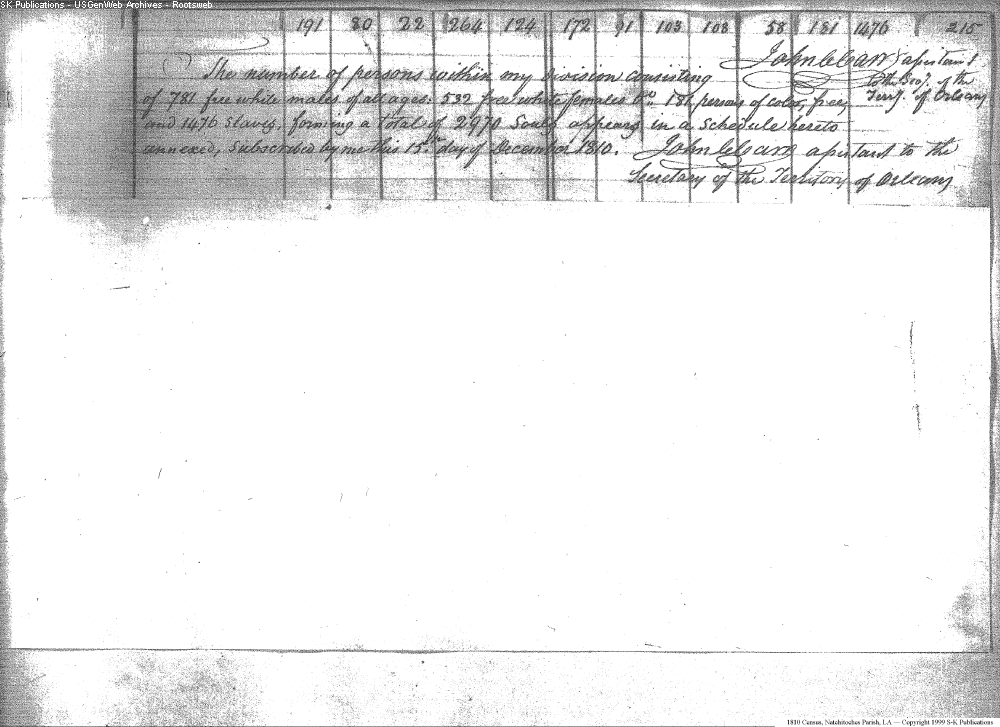 SK Publications - USGenWeb Archives - Rootsweb
191 80 22 264 124 172 91 103 108 58 181 1476 215
John C Carr assistant
to the Secy. of the
Terry. of Orleans
The number of persons within my division consisting
of 781 free white males of all ages. 532 free white females Do. 181 persons of color, free,
and 1476 Slaves, forming a total of 2970 Souls appears in a Schedule hereto
annexed, Subscribed by me this 15th day of December 1810. John C Carr assistant to the
Secretary of the Territory of Orleans
1810 Census, Natchitoches Parish, LA — Copyright 1999 S-K Publications